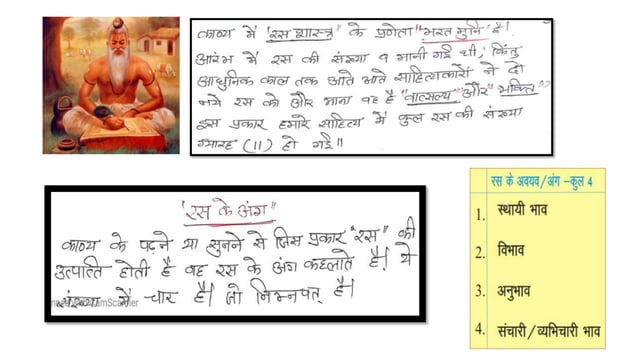 काव्य में "रस शास्त्र" के प्रणेता "भरत मुनि" हैं।
आरंभ में रस की संख्या 9 मानी गई थी, किंतु
आधुनिक काल तक आते आते साहित्यकारों ने दो
नये रस को और माना वह है "वात्सल्य" और "भक्ति"
इस प्रकार हमारे साहित्य में कुल रस की संख्या
ग्यारह (11) हो गई॥
"रस के अंग"
काव्य के पढ़ने या सुनने से जिस प्रकार "रस" की
उत्पात्ति होती है वह रस के अंग कहलाते है। ये
संख्या में चार है। जो निम्नवत् है।
रस के अवयव/अंग -कुल 4
1. स्थायी भाव
2. विभाव
3. अनुभाव
4. संचारी/व्यभिचारी भाव